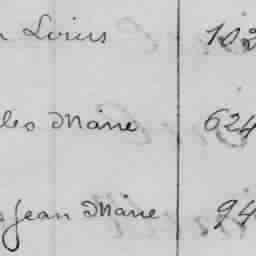 Louis 102
les Marie 624
Jean Marie 94